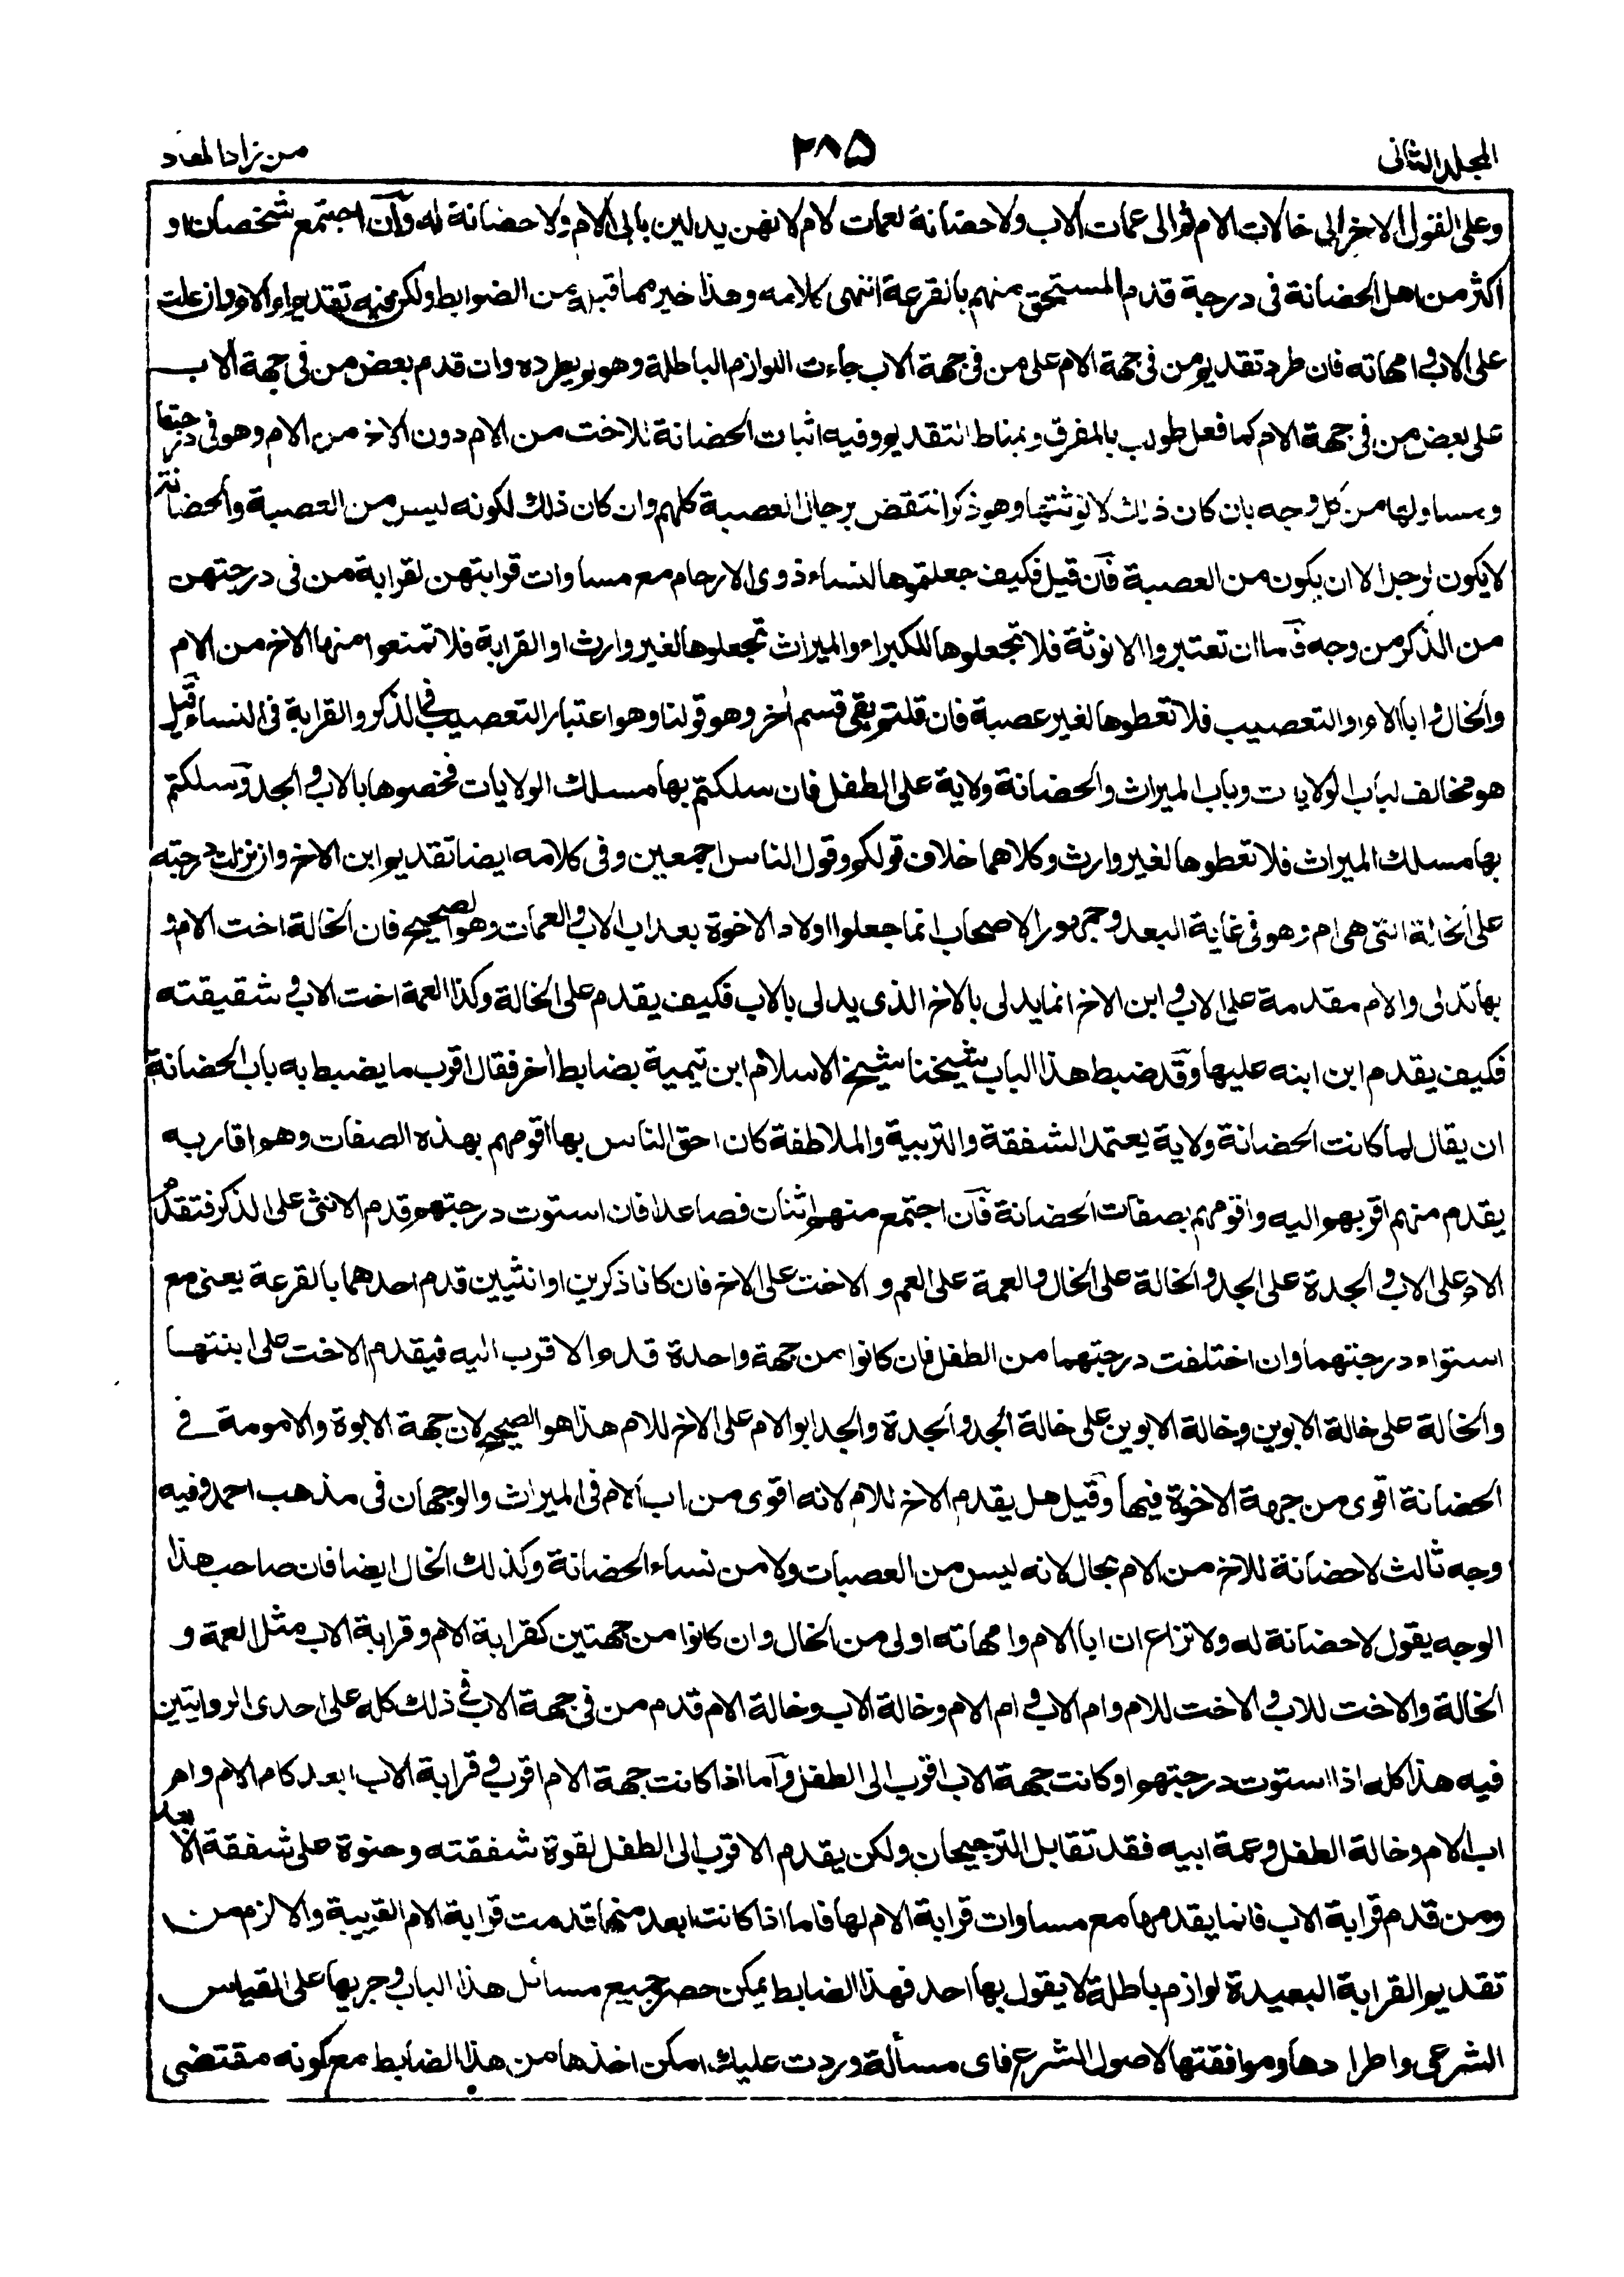 المجلد الثانى
٢٨٥
من زاد المعاد
وعلى القول الاخر الى خالات الام ثم الى عمات الاب ولا حضانة لعمات الام لانهن يدلين بابى الام ولا حضانة له وان اجتمع شخصان او
اكثر من اهل الحضانة فى درجة قدم المستحق منهم بالقرعة انتهى كلامه وهذا خير مما قبله من الضوابط ولكن فيه تقديم ام الام وان علت
على الاب و امهاته فان طرد تقديم من فى جهة الام على من فى جهة الاب جاءت اللوازم الباطلة وهو لم يطرده وان قدم بعض من فى جهة الاب
على بعض من فى جهة الام كما فعل طولب بالفرق وبمناط التقديم وفيه اثبات الحضانة للاخت من الام دون الاخ من الام وهو فى درجتها
ومساو لها من كل وجه بان كان ذلك لانوثتها وهو ذكر انتقض برجال العصبة كلهم وان كان ذلك لكونه ليس من العصبة والحضانة
لا يكون لرجل الا ان يكون من العصبة فان قيل فكيف جعلتموها لنساء ذوى الارحام مع مساوات قرابتهن لقرابة من فى درجتهن
من الذكر من وجه فاما ان تعتبروا الانوثة فلا تجعلوها للكبراء والميراث تجعلوها لغير وارث او القرابة فلا تمنعوا منها الاخ من الام
والخال و ابا الام او التعصيب فلا تعطوها لغير عصبة فان قلتم بقى قسم اخر وهو قولنا وهو اعتبار التعصيب فى الذكر والقرابة فى النساء قيل
هو مخالف لباب الولايات وباب الميراث والحضانة ولاية على الطفل فان سلكتم بها مسلك الولايات فخصوها بالاب و الجد وسلكتم
بها مسلك الميراث فلا تعطوها لغير وارث وكلاهما خلاف قولكم وقول الناس اجمعين وفى كلامه ايضا تقديم ابن الاخ وان نزلت درجته
على الخالة التى هى ام وهو فى غاية البعد وجمهور الاصحاب انما جعلوا اولاد الاخوة بعد اب الاب و العمات وهو الصحيح فان الخالة اخت الام و
بها تدلى والام مقدمة على الاب و ابن الاخ انما يدلى بالاخ الذى يدلى بالاب فكيف يقدم على الخالة وكذا العمة اخت الاب و شقيقته
فكيف يقدم ابن ابنه عليها وقد ضبط هذا الباب شيخنا شيخ الاسلام ابن تيمية بضابط اخر فقال اقرب ما يضبط به باب الحضانة
ان يقال لما كانت الحضانة ولاية يعتمد الشفقة والتربية والملاطفة كان احق الناس بها اقومهم بهذه الصفات وهو اقاربه
يقدم منهم اقربهم اليه واقومهم بصفات الحضانة فان اجتمع منهم اثنان فصاعدا فان استوت درجتهم قدم الانثى على الذكر فتقدم
الام على الاب و الجدة على الجد و الخالة على الخال و العمة على العم و الاخت على الاخ فان كانا ذكرين او انثيين قدم احدهما بالقرعة يعنى مع
استواء درجتهما وان اختلفت درجتهما من الطفل فان كانوا من جهة واحدة قدم الاقرب اليه فيقدم الاخت على ابنتها
والخالة على خالة الابوين وخالة الابوين على خالة الجد و الجدة والجد ابو الام على الاخ للام هذا هو الصحيح لان جهة الابوة والامومة فى
الحضانة اقوى من جهة الاخوة فيها وقيل هل يقدم الاخ للام لانه اقوى من اب الام فى الميراث والوجهان فى مذهب احمد وفيه
وجه ثالث لا حضانة للاخ من الام بحال لانه ليس من العصبات ولا من نساء الحضانة وكذلك الخال ايضا فان صاحب هذا
الوجه يقول لا حضانة له ولا نزاع ان ابا الام وامهاته اولى من الخال وان كانوا من جهتين كقرابة الام وقرابة الاب مثل العمة و
الخالة والاخت للاب و الاخت للام وام الاب و ام الام وخالة الاب وخالة الام قدم من فى جهة الاب فى ذلك كله على احدى الروايتين
فيه هذا كله اذا استوت درجتهم او كانت جهة الاب اقرب الى الطفل واما اذا كانت جهة الام اقرب و قرابة الاب ابعد كام الام وام
اب الام وخالة الطفل وعمة ابيه فقد تقابل الترجيحان ولكن يقدم الاقرب الى الطفل لقوة شفقته وحنوة على شفقة الابعد
ومن قدم قرابة الاب فانما يقدمها مع مساوات قرابة الام لها فاما اذا كانت ابعد منها قدمت قرابة الام القريبة والا لزم من
تقديم القرابة البعيدة لوازم باطلة لا يقول بها احد فهذا الضابط يمكن حصر جميع مسائل هذا الباب و جريها على القياس
الشرعى واطرادها وموافقتها لاصول الشرع فاى مسألة وردت عليك امكن اخذها من هذا الضابط مع كونه مقتضى